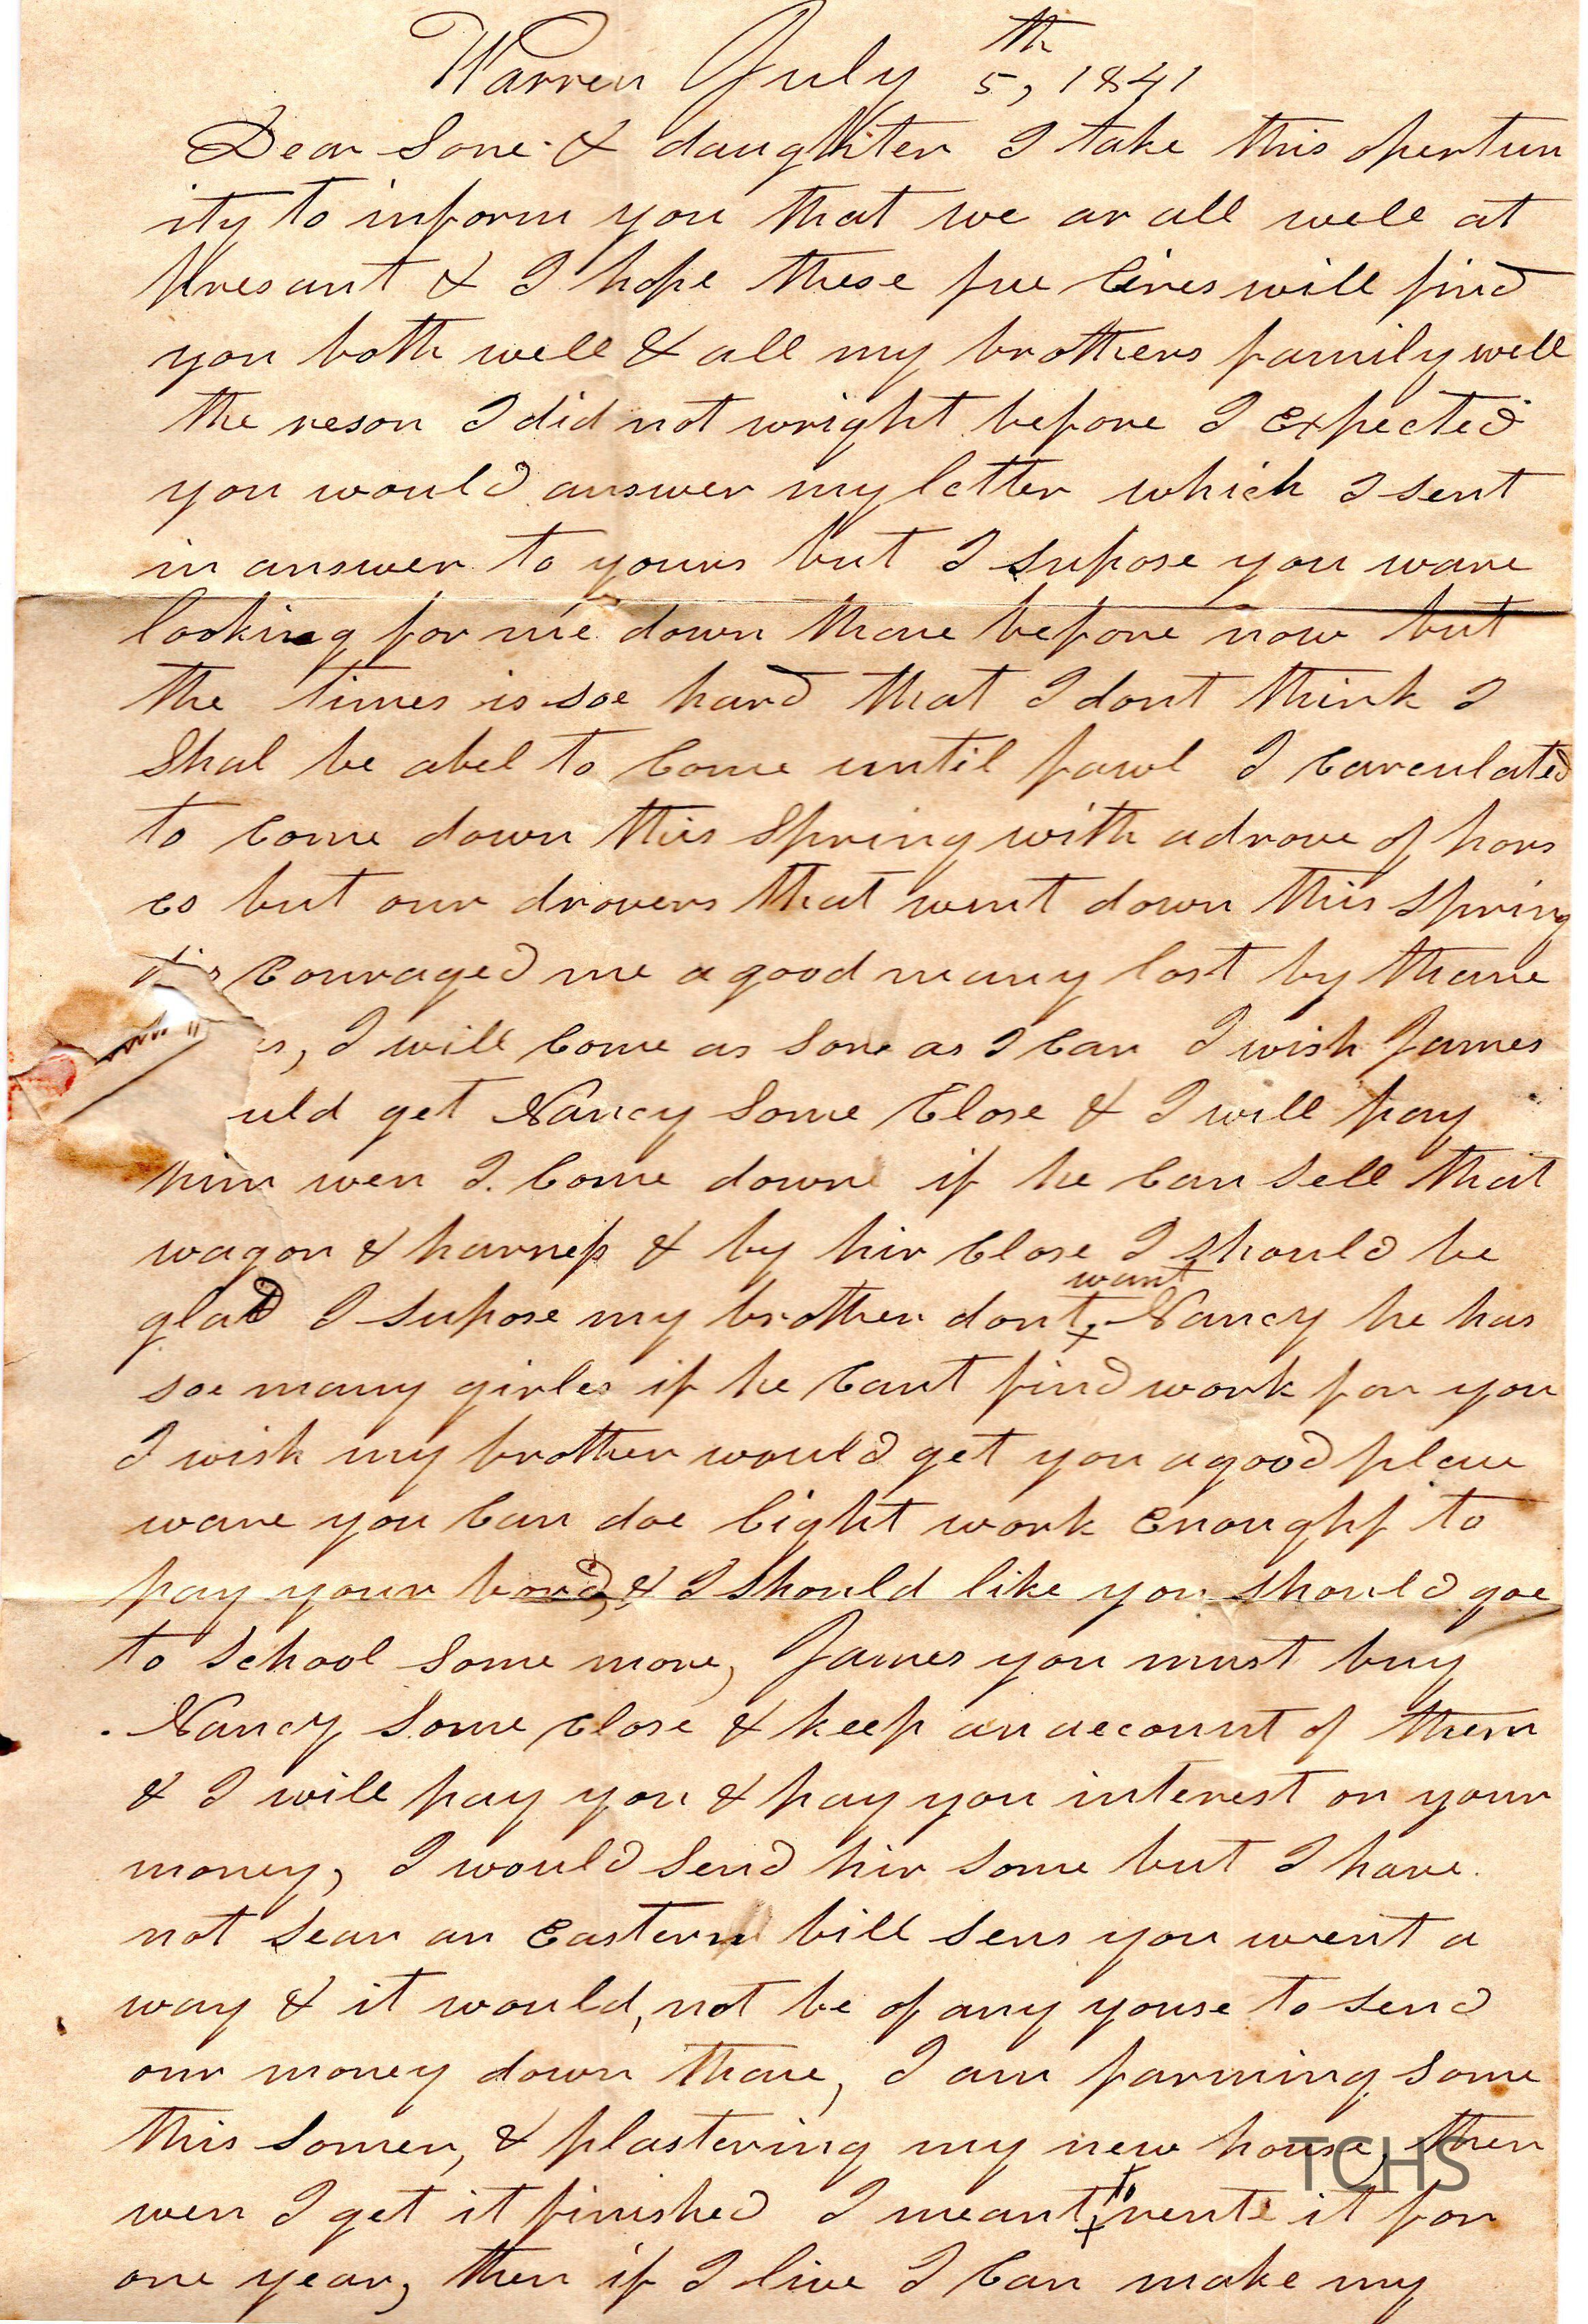 Warren July 5th, 1841
Dear Sone & daughter I take this opertun
ity to inform you that we ar all well at
Presant & I hope these fue lines will find
you both well & all my brothers family well
the reson I did not wright before I Expected
you would answer my letter which I sent
in answer to yours but I supose you ware
looking for me down thare before now but
the times is soe hard that I dont think I
Shal be abel to Come until fawl I Carculated
to Come down this Spring with a drove of hors
es but our drovers that went down this spring
dis Couraged me a good many lost by thare
es, I will Come as Sone as I Can I wish James
uld get Nancy Some Close & I will pay
him wen I Come down if he Can Sell that
wagon & harness & by hir Close I should be
glad I supose my brother dont want Nancy he has
soe many girles if he Cant find work for you
I wish my brother would get you a good place
ware you Can doe light work Enought to
pay your bord, & I Should like you should goe
to School Some more, James you must buy
Nancy Some Close & keep an account of them
& I will pay you & pay you interest on your
money, I would Send hir Some but I have
not Sean an Eastern bill Sens you went a
way & it would, not be of any youse to Send
our money down thare, I am farming Some
this Somer, & plastering my new house, then
wen I get it finished I meant to rente it for
one year, then if I live I Can make my
TCHS